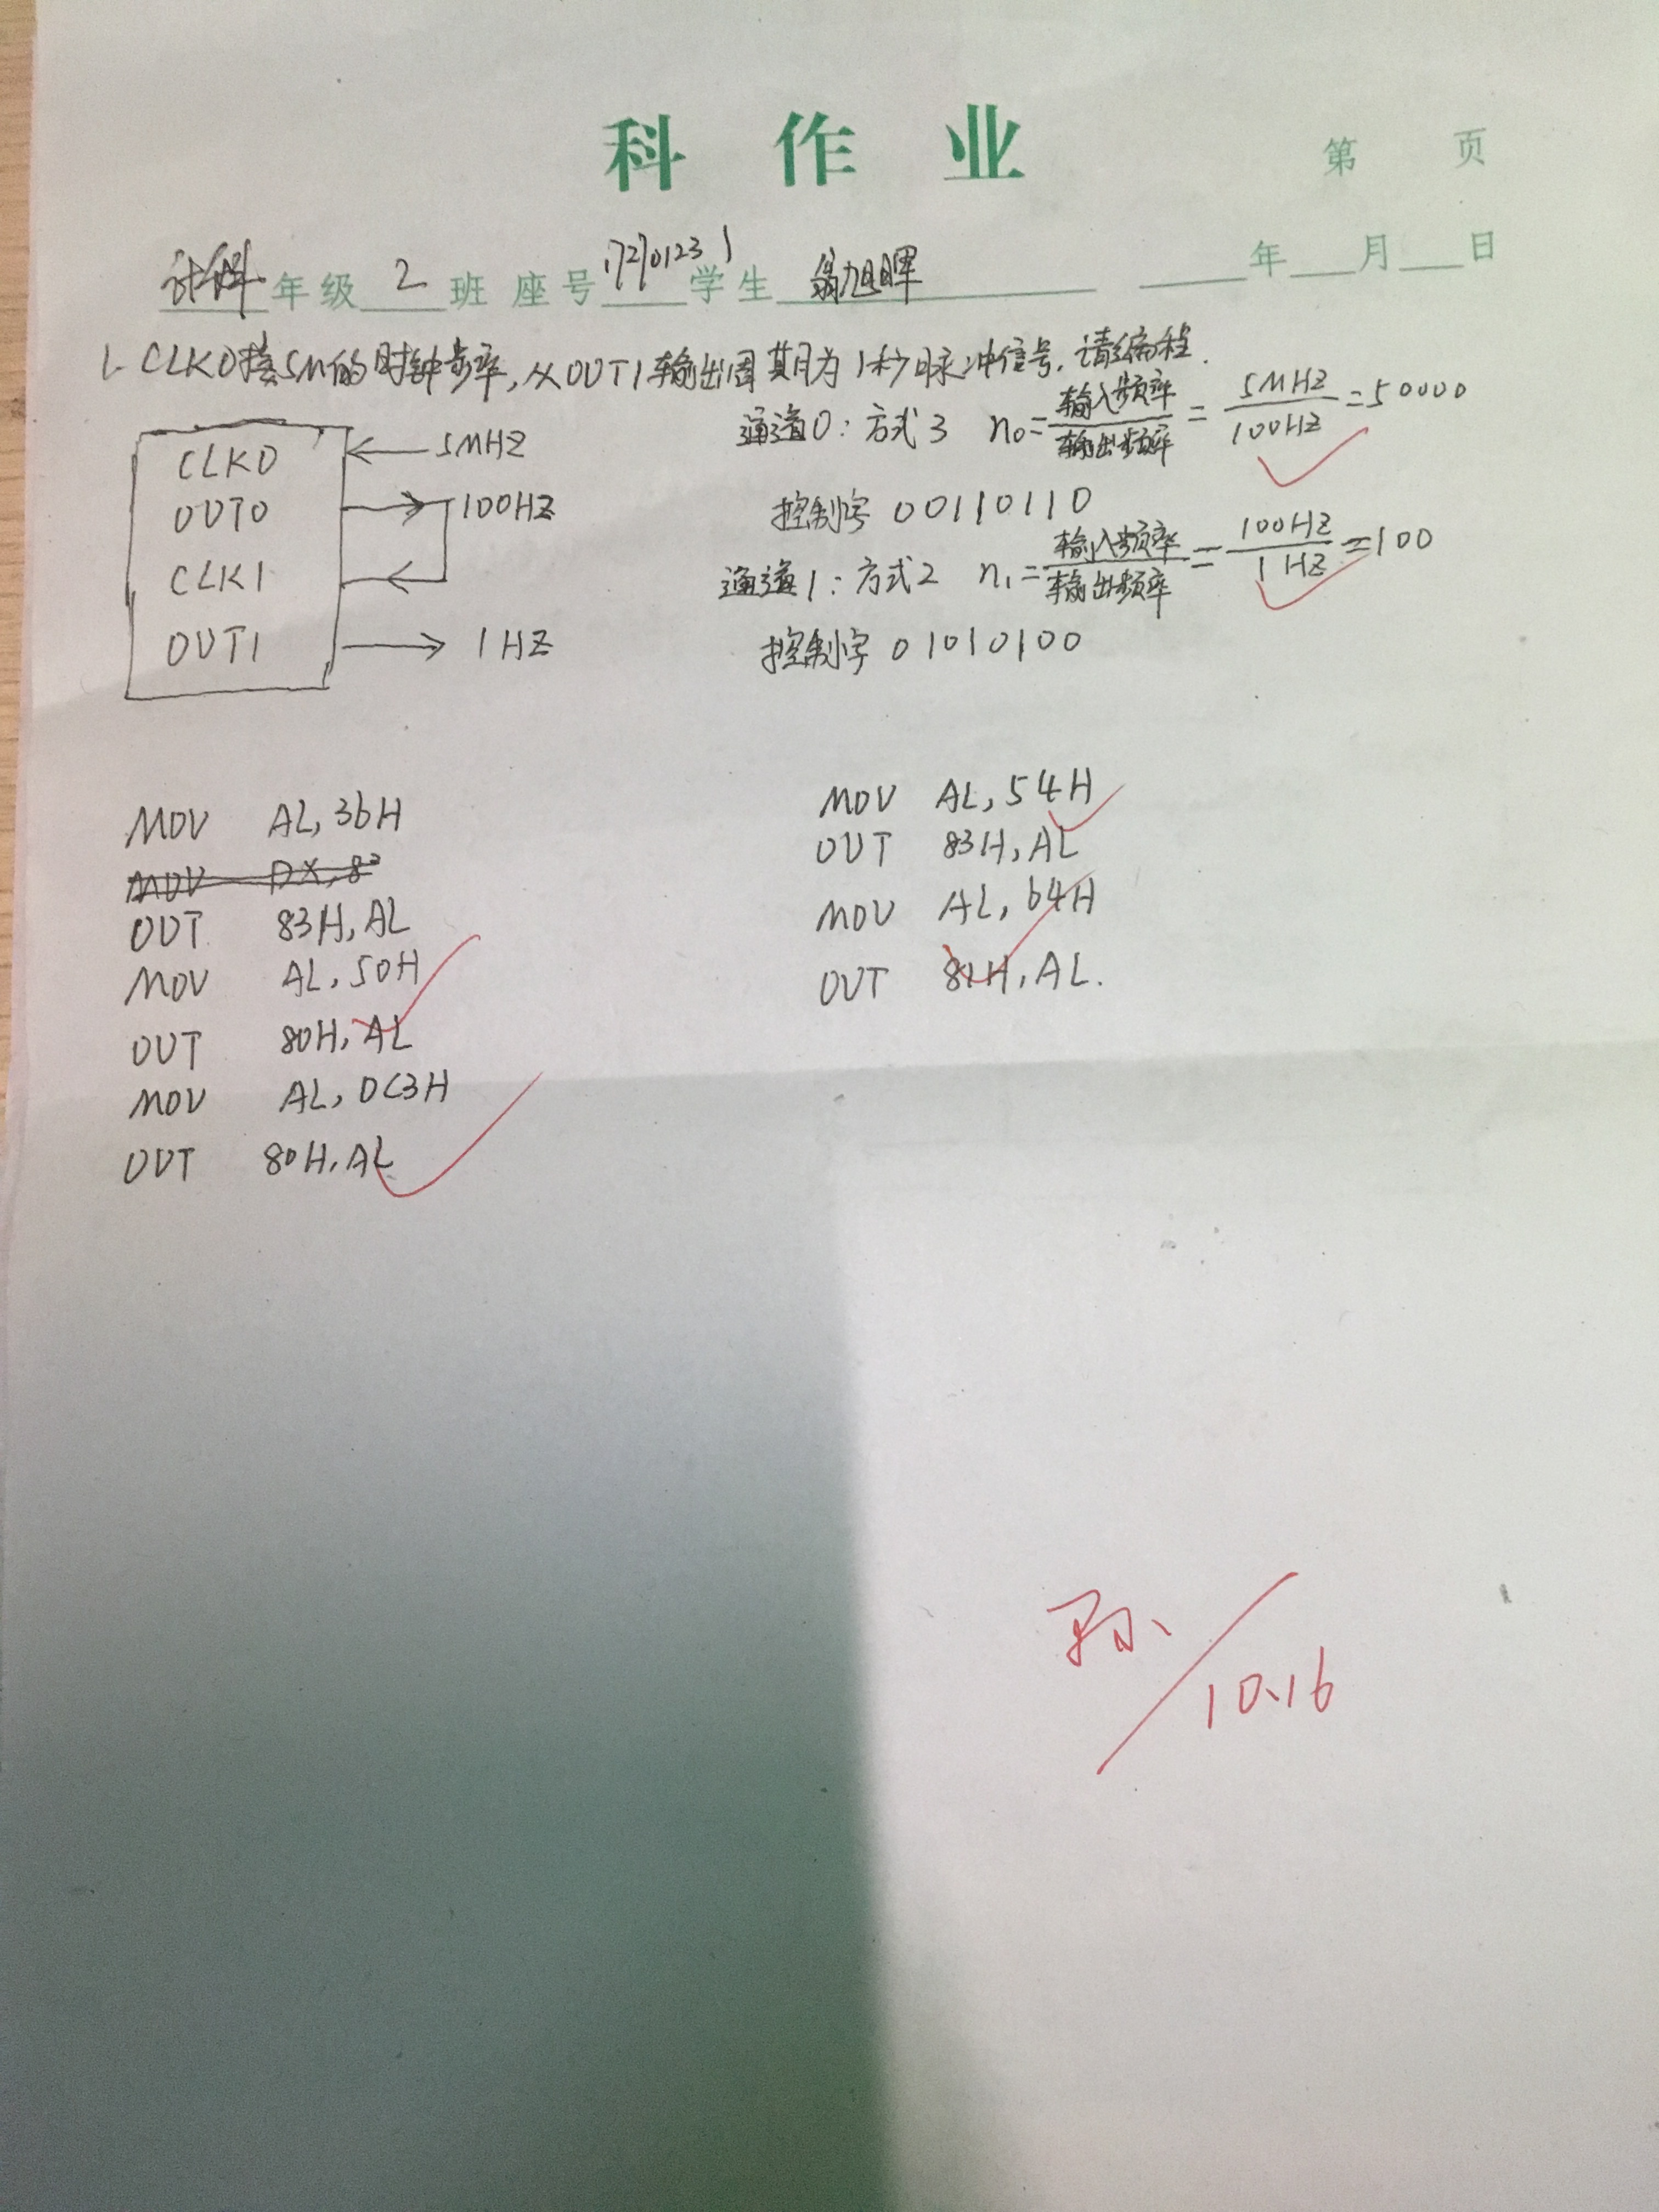 科 作 业
第 页
计科 年级 2 班 座号 17270123 1 学生 翁旭晖 年 月 日
1. CLK0接5M的时钟步率,从OUT1输出周期为1秒脉冲信号.请编程.
CLK0 5MHZ
OUT0 100HZ
CLK1
OUT1 1HZ
通道0:方式3 n0=输入频率/输出频率=5MHZ/100HZ=50000
控制字 00110110
通道1:方式2 n1=输入频率/输出频率=100HZ/1HZ=100
控制字 01010100
MOV AL,36H
MOV DX,8
OUT 83H,AL
MOV AL,50H
OUT 80H,AL
MOV AL,0C3H
OUT 80H,AL
MOV AL,54H
OUT 83H,AL
MOV AL,64H
OUT 81H,AL.
10.16